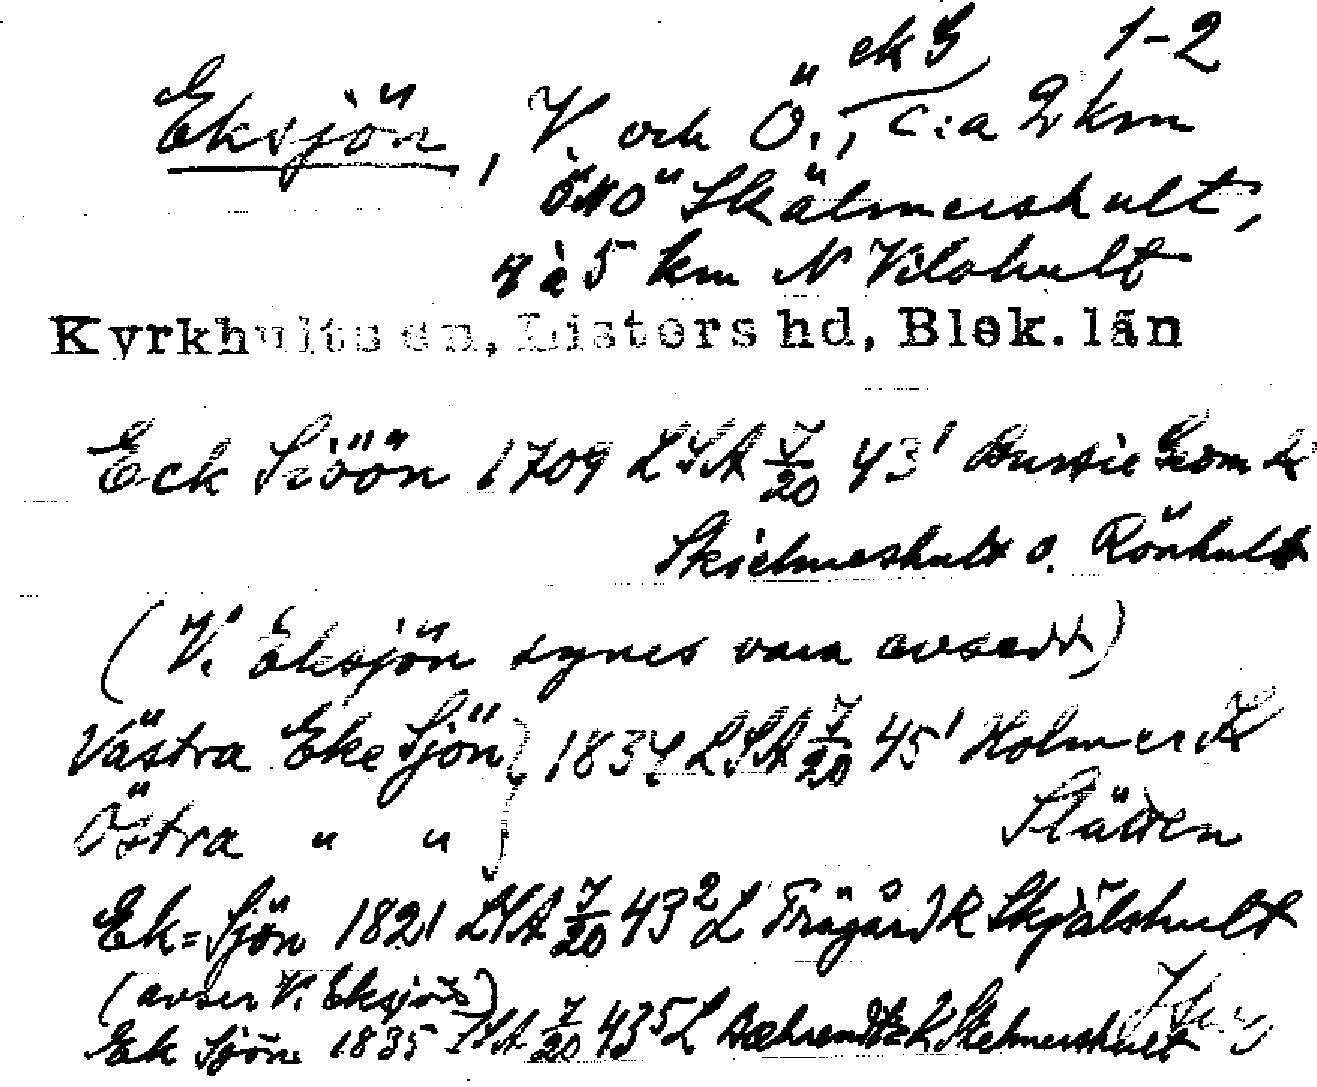 ek S 1-2
Eksjön, V. och Ö., c:a 2 km
ÖNO Skälmershult,
4 à 5 km N Vilshult
Kyrkhults sn, Listers hd, Blek. län
Eck Siöön 1709 LSA 7/20 43¹ Geom K
Skielmeshult o. Rönhult
(V. Eksjön synes vara avsedd)
Västra Eke Sjön } 1834 LSA 7/20 45¹ Holmer K
Östra " " Slätten
Ek=Sjön 1821 LSA 7/20 43² L Trägård K Skjälshult
(avser V. Eksjön)
Eck Sjön 1835 LSA 7/20 43⁵ L Bæhrendtz K Skelmershult